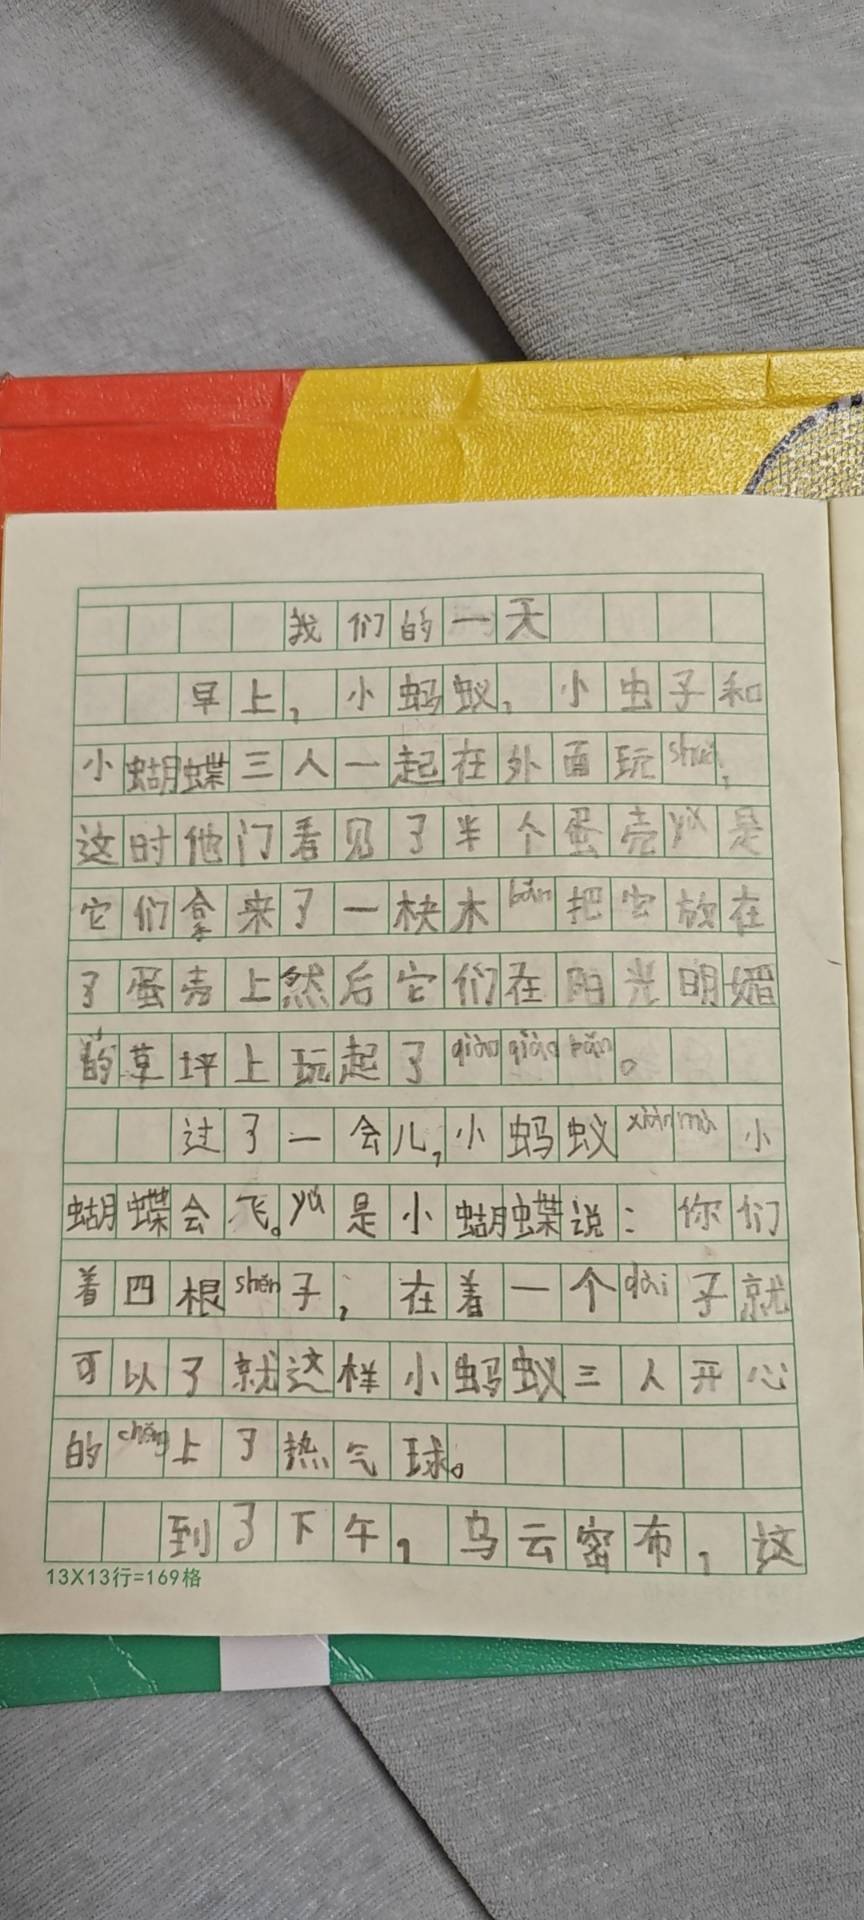 我们的一天
早上，小蚂蚁，小虫子和
小蝴蝶三人一起在外面玩shuǎ，
这时他门看见了半个蛋壳yú是
它们拿来了一块木bǎn把它放在
了蛋壳上然后它们在阳光明媚
的草坪上玩起了qiào qiào bǎn。
过了一会儿，小蚂蚁xiàn mù小
蝴蝶会飞。yú是小蝴蝶说：你们
着四根shěn子，在着一个dài子就
可以了就这样小蚂蚁三人开心
的chěng上了热气球。
到了下午，乌云密布，这
13X13行=169格